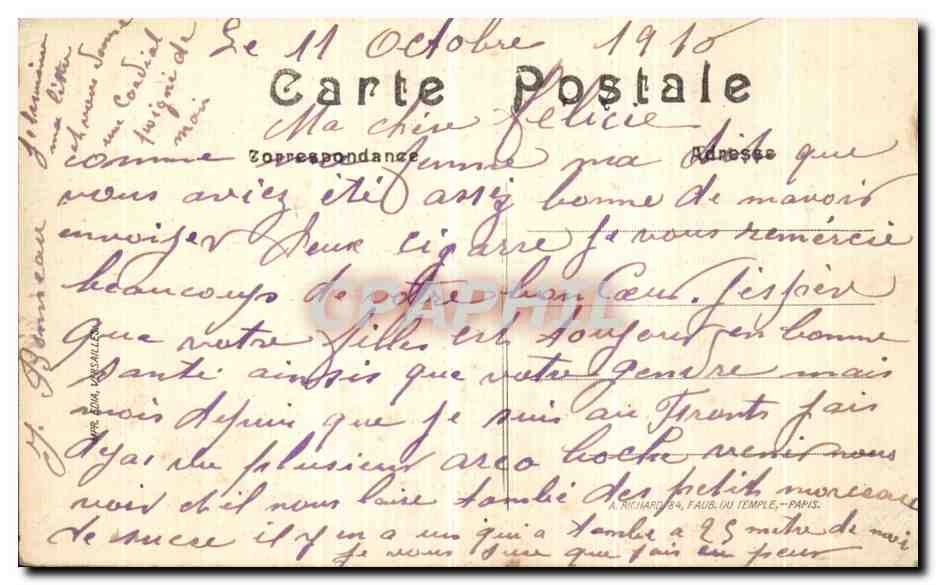 Le 11 Octobre 191
Carte Postale
Ma chère Félicie
Correspondance
Adresse
comme femme ma dit que
vous aviez été assez bonne de mavoir
envoiyer deux cigarre je vous remércie
beaucoups de votre bon Cœur. jespèr
que votre filles est toujour en bonne
santé ainsis que votre gendre mais
mois depuis que je suis au Fronts jais
dejas vu plusieur areo boche venir nous
voir et il nous laise tombé des petit morceau
de sucre il y en a un qui a tombé a 25 mètre de moi
je vous jure que jais eu peur
Je termine
ma lettre
et vous donne
une Cordial
poigné de
main
J. Bonneau
IMP. EDIA, VERSAILLES
A. RICHARD, 84, FAUB. DU TEMPLE,—PARIS.
CPAPHIL